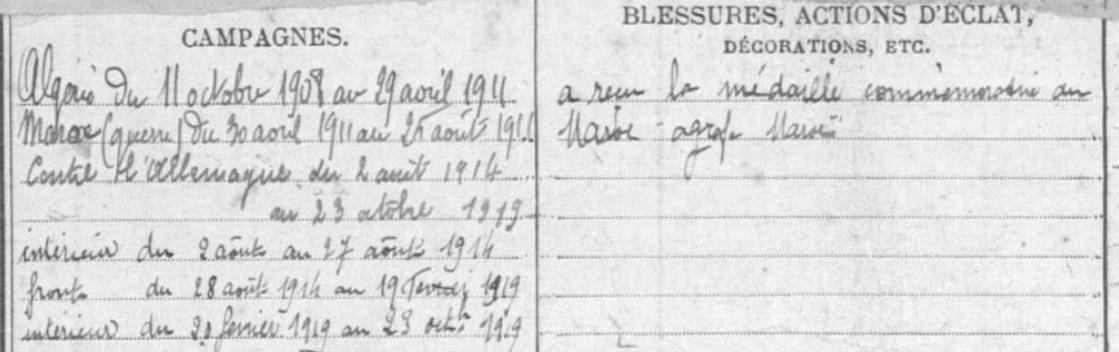 CAMPAGNES.
Algérie du 11 octobre 1908 au 29 avril 1911
Maroc (guerre) du 30 avril 1911 au 25 août 1911
Contre l'Allemagne du 2 août 1914
au 23 octobre 1919
intérieur du 2 août au 27 août 1914
front du 28 août 1914 au 19 février 1919
intérieur du 20 février 1919 au 23 octbre 1919
BLESSURES, ACTIONS D'ÉCLAT,
DÉCORATIONS, ETC.
a reçu la médaille commémorative du
Maroc agrafe "Maroc"